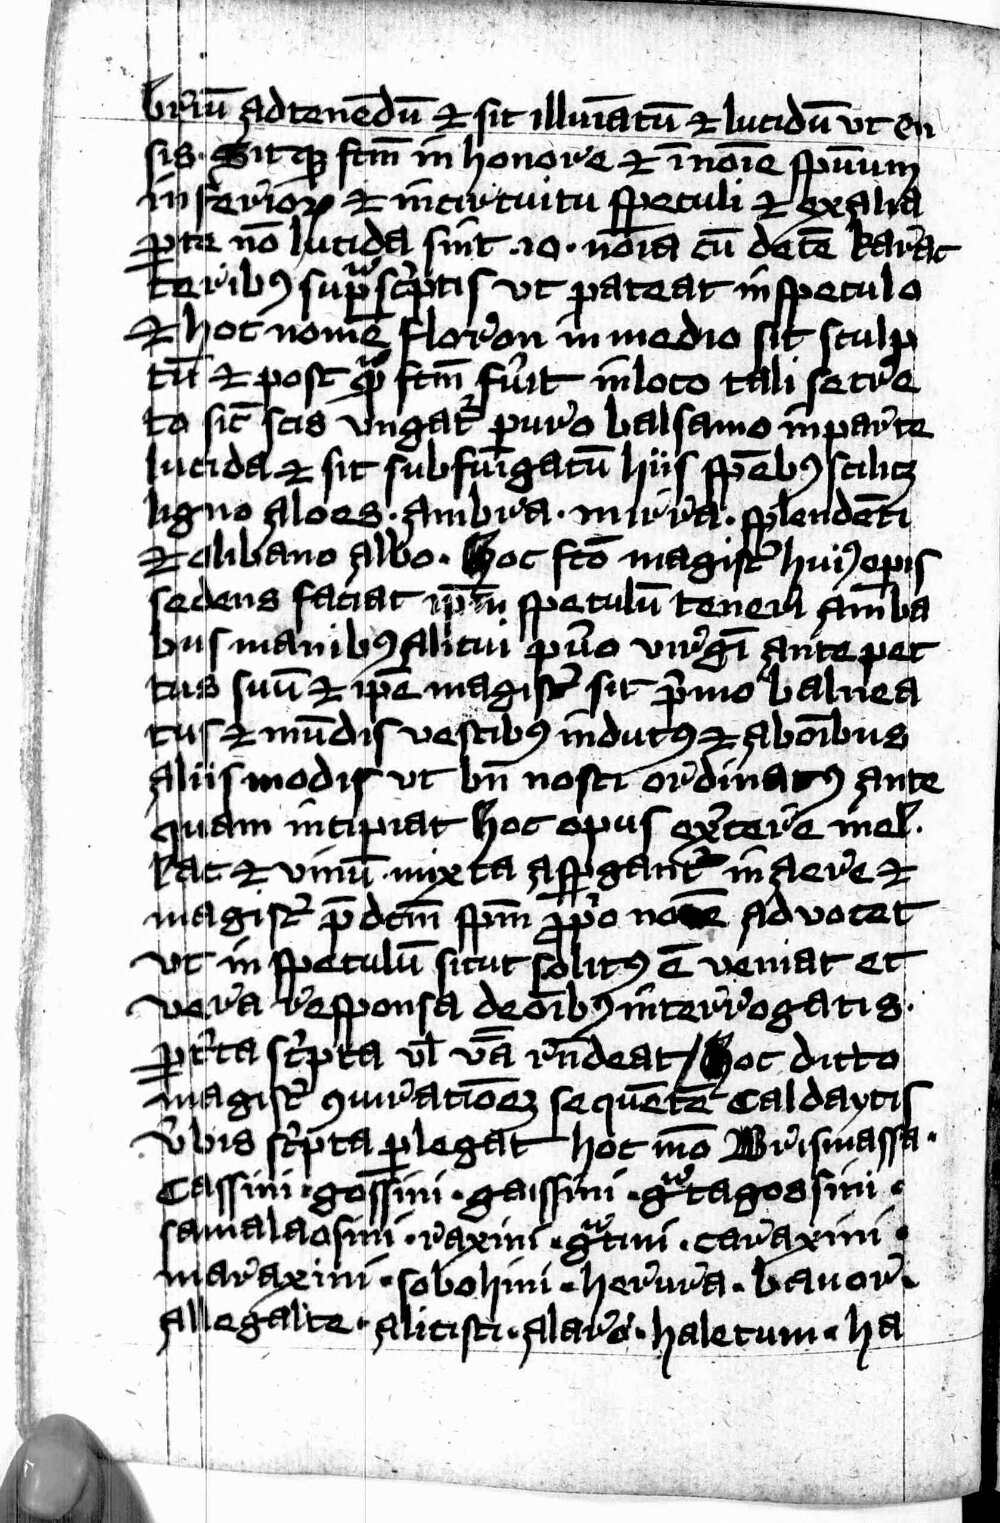 briū ad tenēdū et sit illuīatū et lucidū ut en
sis. Sitq̄ ftm̄ in honore et ī noīe spūum
inferioꝝ et in circuitu speculi et ex alia
ꝑte nō lucida sint .10. noīa cū decē karac
teribꝰ sup̄ sc̄ptis ut pateat in speculo
et hoc nomē floron in medio sit sculp
tū et post qͣ ftm̄ fu̾it in loco tali secre
to sic̄ scis ungat᷑ puro balsamo in parte
lucida et sit subfūigatū hiis spēbꝰ scilicꝫ
ligno aloes. ambra. mirra. splendēti
et olibano albo. Hoc fc̄o magist̾ huiꝰ oꝑis
sedens faciat ip̄m speculū teneri amba
bus manibꝰ alicui pu̾o virgī ante pec
tus suū et ip̄e magist̾ sit p̄mo balnea
tus et mūdis vestibꝰ indutꝰ et ab oībus
aliis modis ut bn̄ nosti ordinatꝰ ante
quam incipiat hoc opus ex̾cere mel.
lac et vinū mixta aspgant᷑ in aere et
magist̾ p̄dcm̄ spm̄ ꝓp̾o noīe advocet
ut in speculū sicut solitꝰ ē veniat et
vera responsa de oībꝰ interrogatis.
ꝑ l̾ta sc̾pta vl̄ v̄a rn̄deat / Hoc dicto
magist̾ ꝯiuratiōeꝫ sequētē Caldaycis
v̾bis sc̾pta ꝑlegat hoc mō Brismassa.
Cassini. gossini. gaissini. gͣtagossini.
samalaosini. raxini. gͣtini. caraxini.
maraxini. sobohini. herura. bauor.
Allegalte. alitisti. alaro. haletum. ha